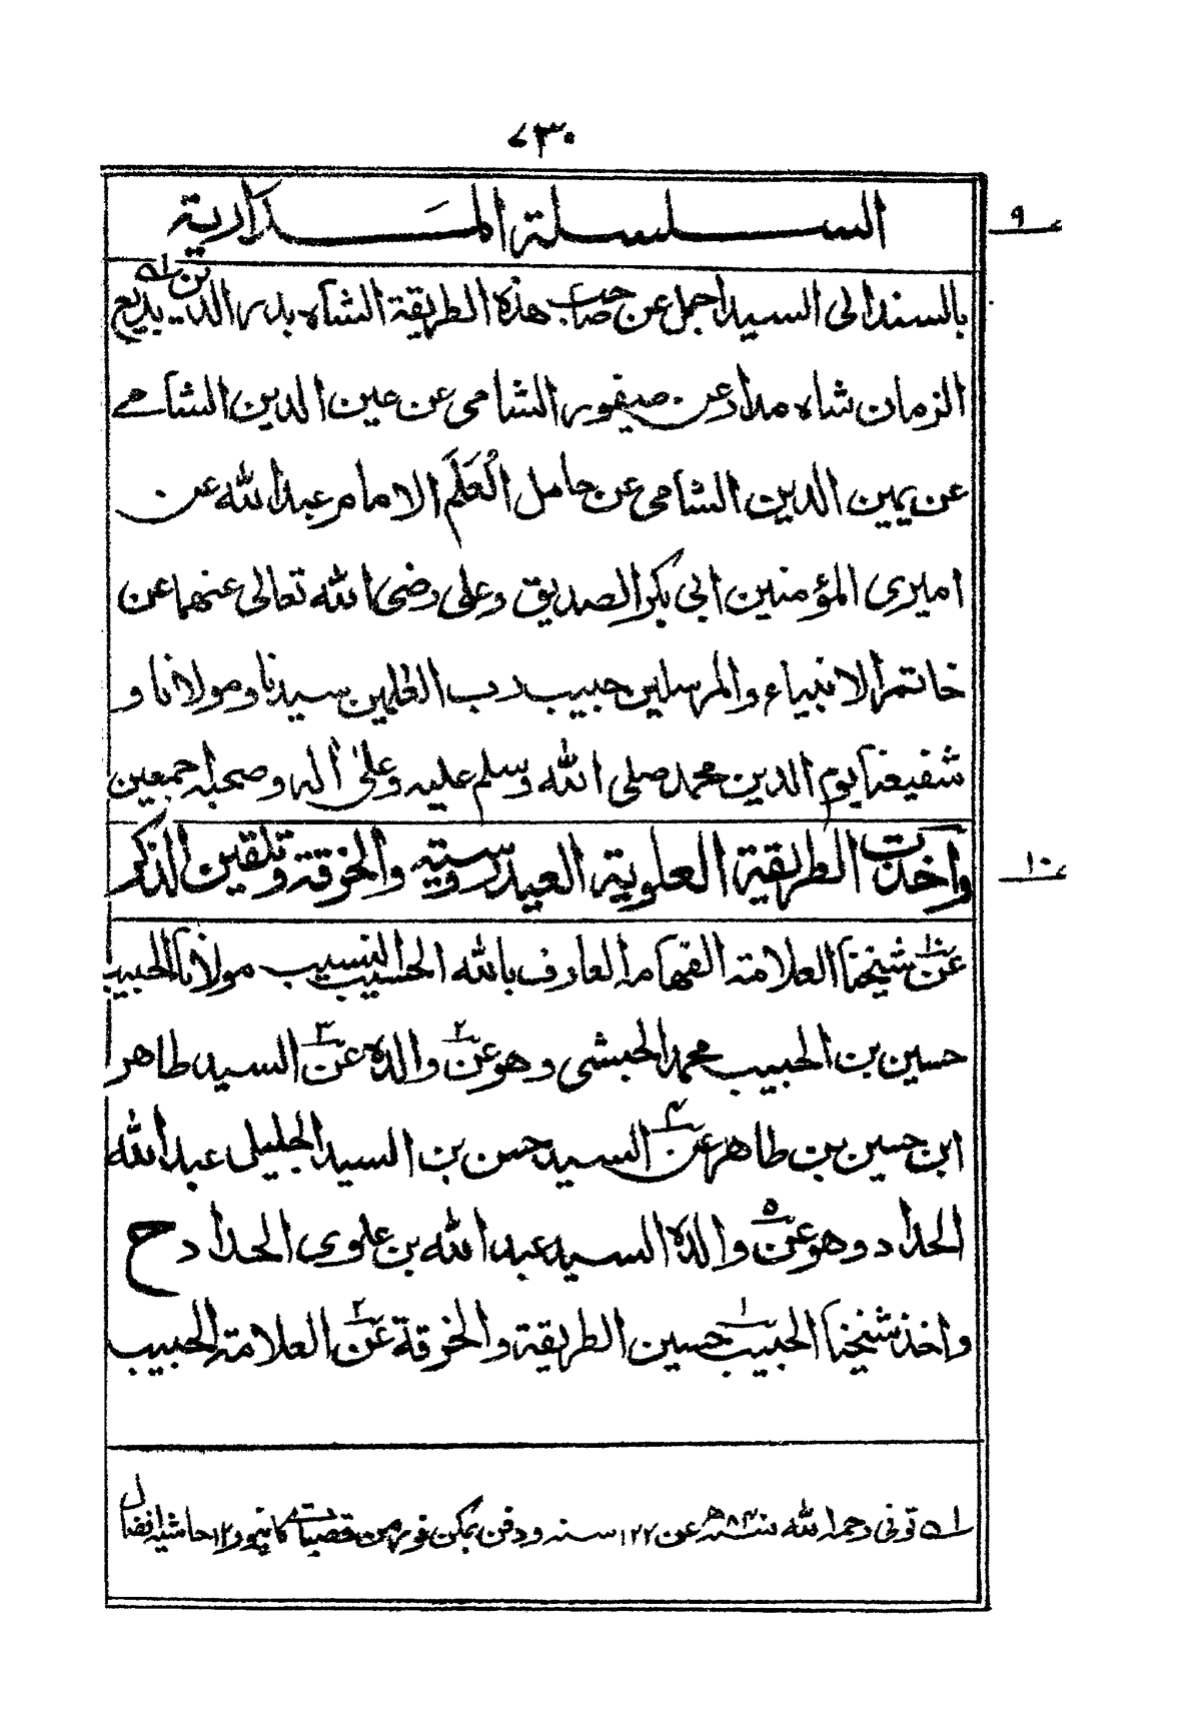 ٧٣٠
السلسلة المدارية
٩
بالسند الى السيد اجمل عن صاحب هذه الطريقة الشاه بدر الدين بديع
الزمان شاه مدار عن صيفور الشامى عن عين الدين الشامى
عن يمين الدين الشامى عن حامل الْعَلَم الامام عبد الله عن
اميرى المؤمنين ابى بكر الصديق وعلى رضى الله تعالى عنهما عن
خاتم الانبياء والمرسلين حبيب رب العٰلمين سيدنا ومولانا و
شفيعنا يوم الدين محمد صلى الله وسلم عليه وعلىٰ اله وصحبه اجمعين
واخذت الطريقة العلوية العيدروسية والخرقة وتلقين الذكر
١٠
عن١ شيخنا العلامة الفهامة العارف بالله الحسيب النسيب مولانا الحبيب
حسين بن الحبيب محمد الحبشى وهو عن٢ والده عن٣ السيد طاهر
ابن حسين بن طاهر عن٤ السيد حسن بن السيد الجليل عبد الله
الحداد وهو عن٥ والده السيد عبد الله بن علوى الحداد ح
واخذ شيخنا الحبيب١ حسين الطريقة والخرقة عن٢ العلامة الحبيب
ا ه توفى رحمه الله سنة ٨٤٠ه عن ١٢٢ سنة ودفن بمكن فور من قصبات كانپور ١٢ حاشيه